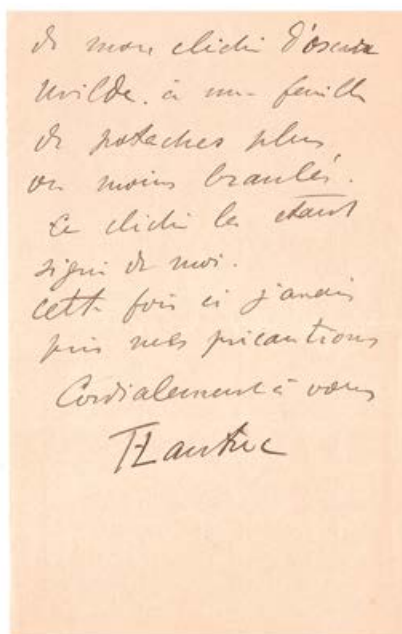 de mon cliché d'oscar
Wilde. à une feuille
de potaches plus
ou moins branlés.
Ce cliché là étant
signé de moi.
cette fois ci j'aurais
pris mes précautions
Cordialement à vous
TLautrec